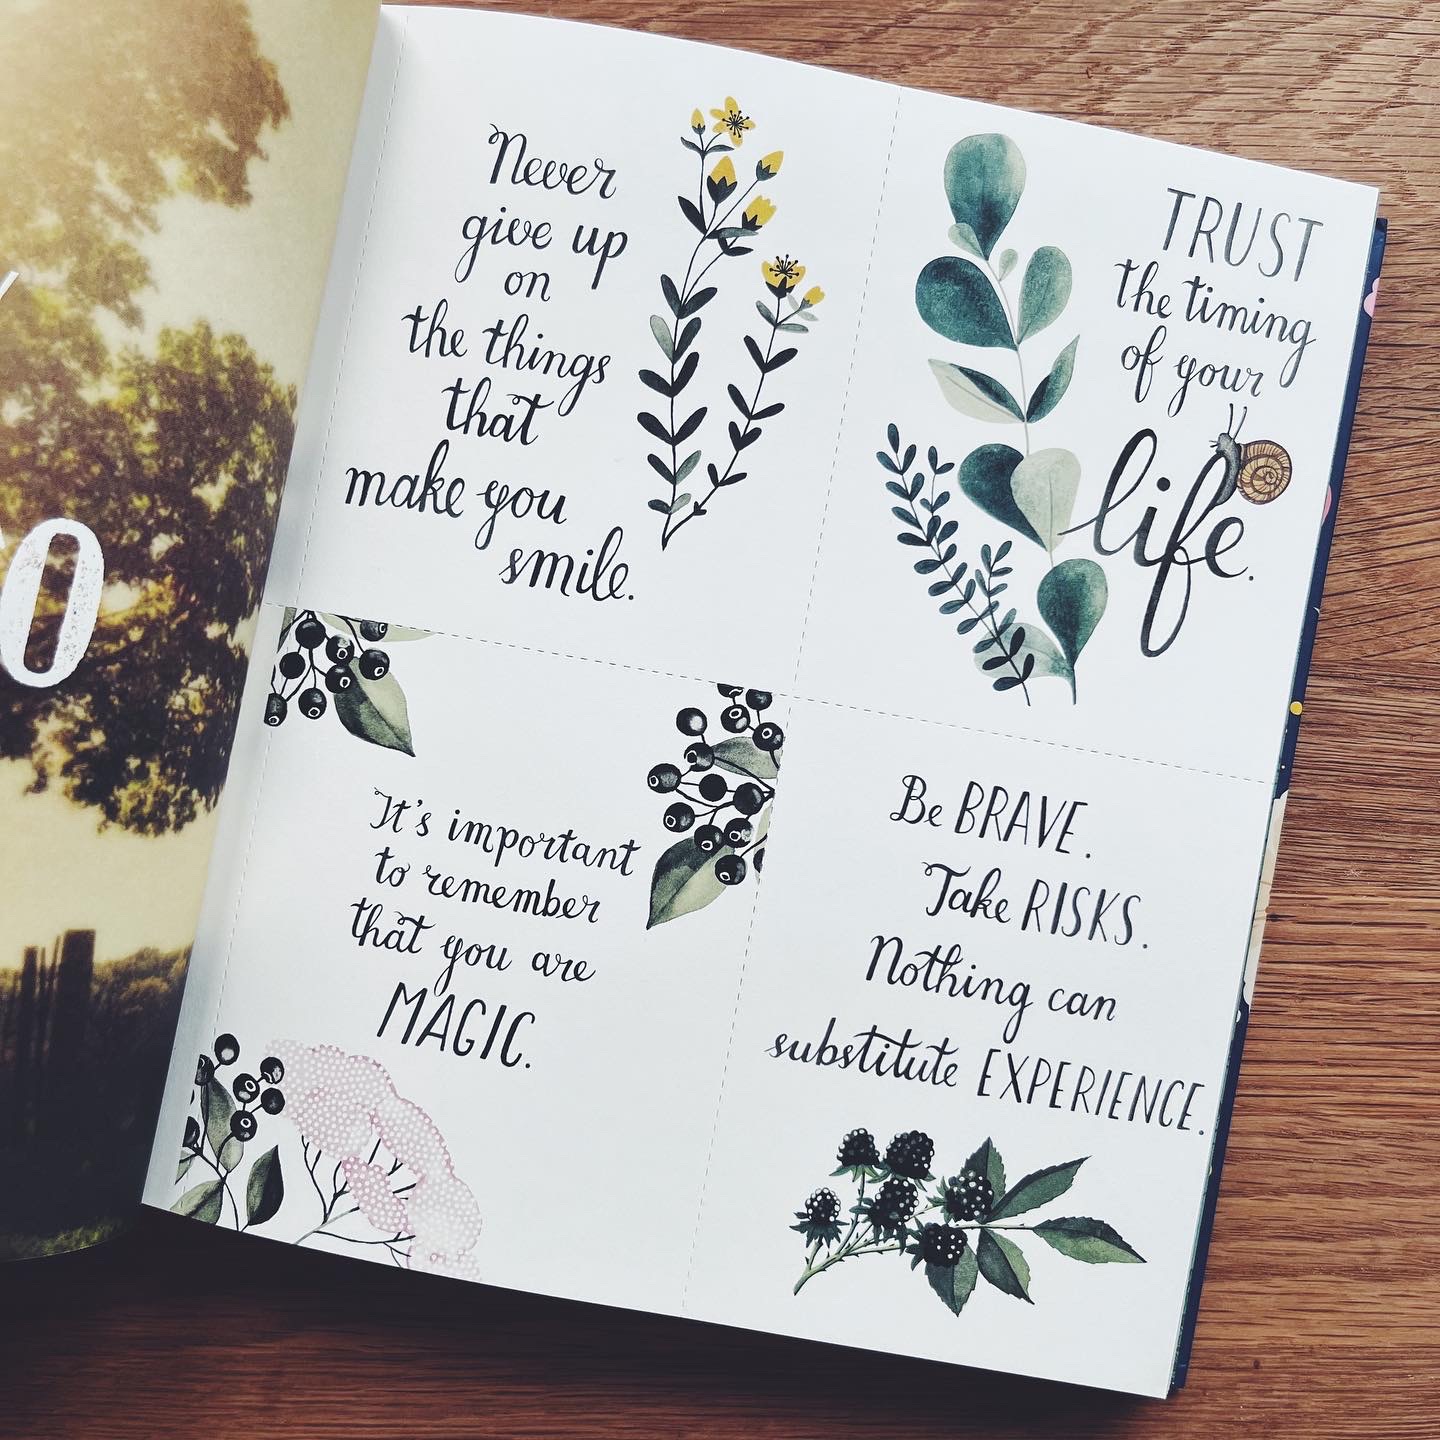 Never
give up
on
the things
that
make you
smile.
TRUST
the timing
of your
life.
It's important
to remember
that you are
MAGIC.
Be BRAVE.
Take RISKS.
Nothing can
substitute EXPERIENCE.